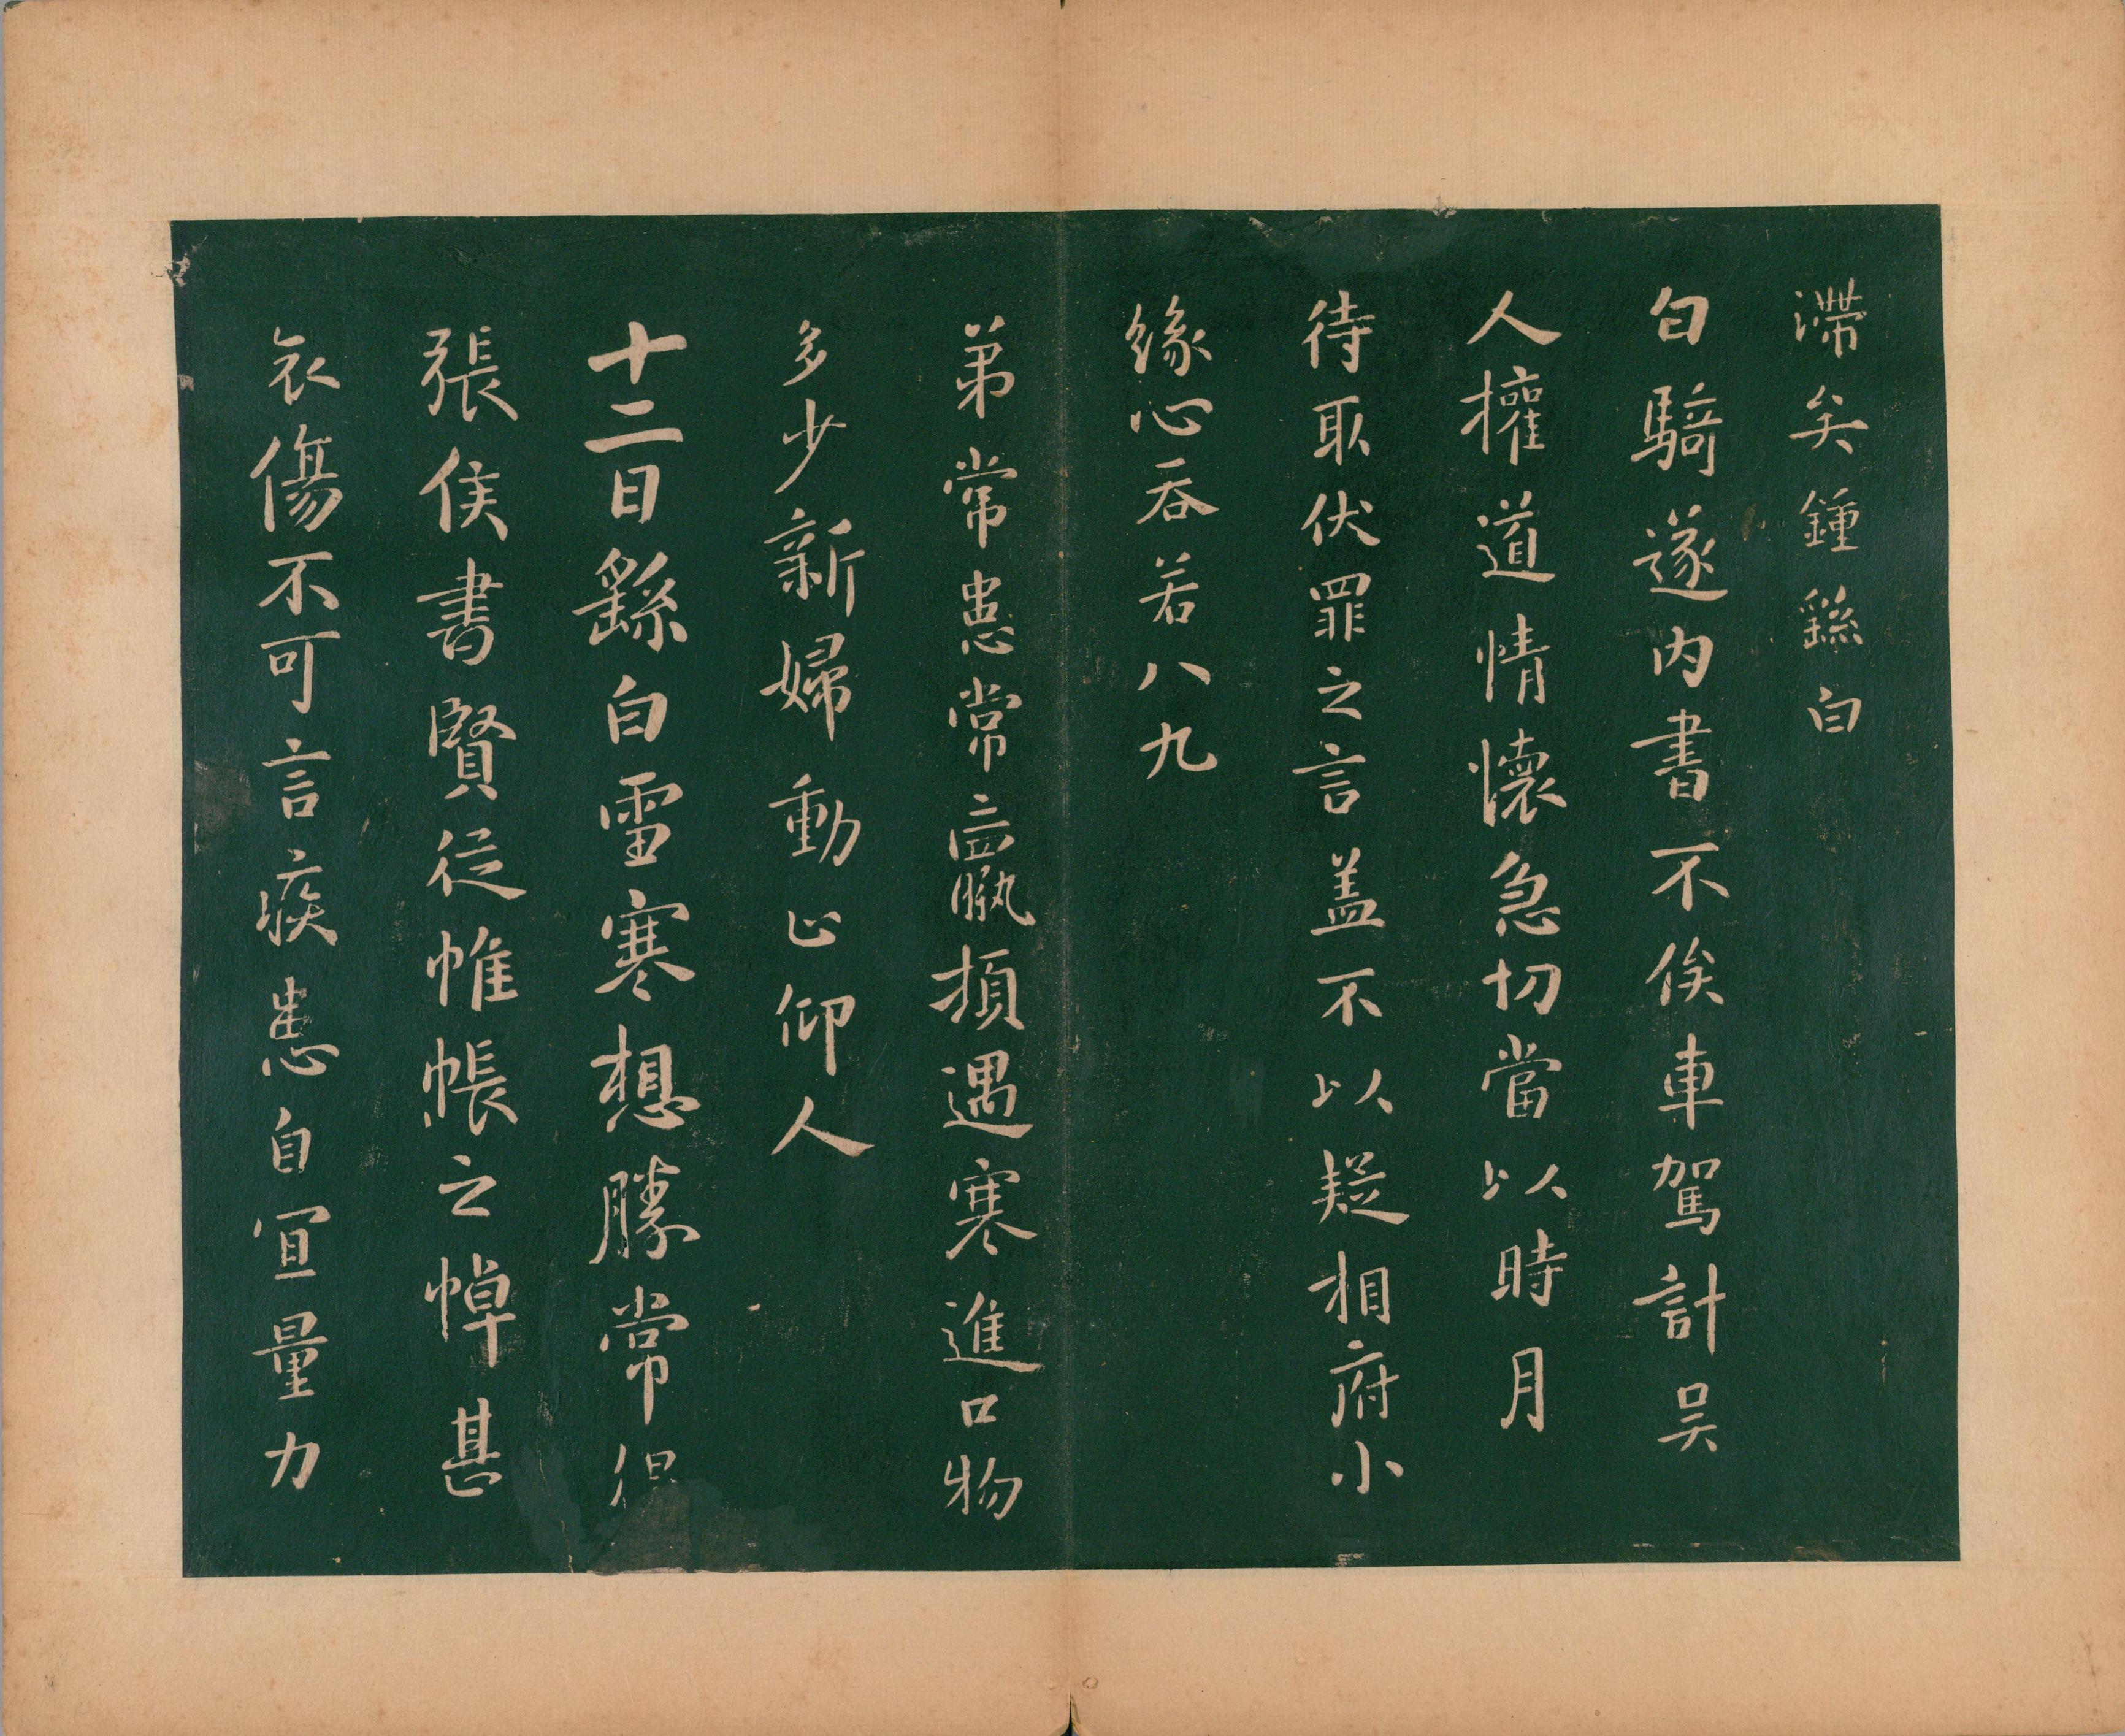 滯矣鍾繇白
白騎遂內書不俟車駕計吳
人權道情懷急切當以時月
待取伏罪之言盖不以疑相府小
緣心吞若八九
弟常患常 損遇寒進口物
多少新婦動止仰人
十二日繇白雪寒想勝常得
張侯書賢從帷帳之悼甚
哀傷不可言疾患自宜量力